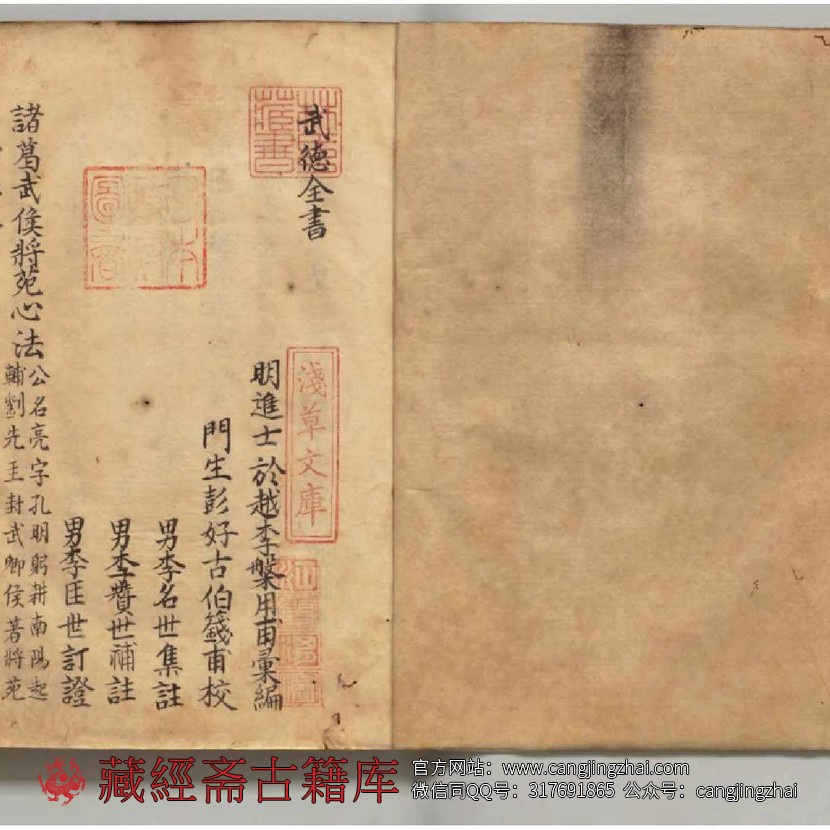 武德全書
明進士於越李槃用甫彙編
門生彭好古伯籛甫校
男李名世集註
男李贊世補註
男李匡世訂證
諸葛武侯將苑心法
公名亮字孔明躬耕南陽起
輔劉先王封武卿侯著將苑
淺草文庫
藏書
藏經斋古籍库
官方网站：www.cangjingzhai.com
微信同QQ号：317691865 公众号：cangjingzhai